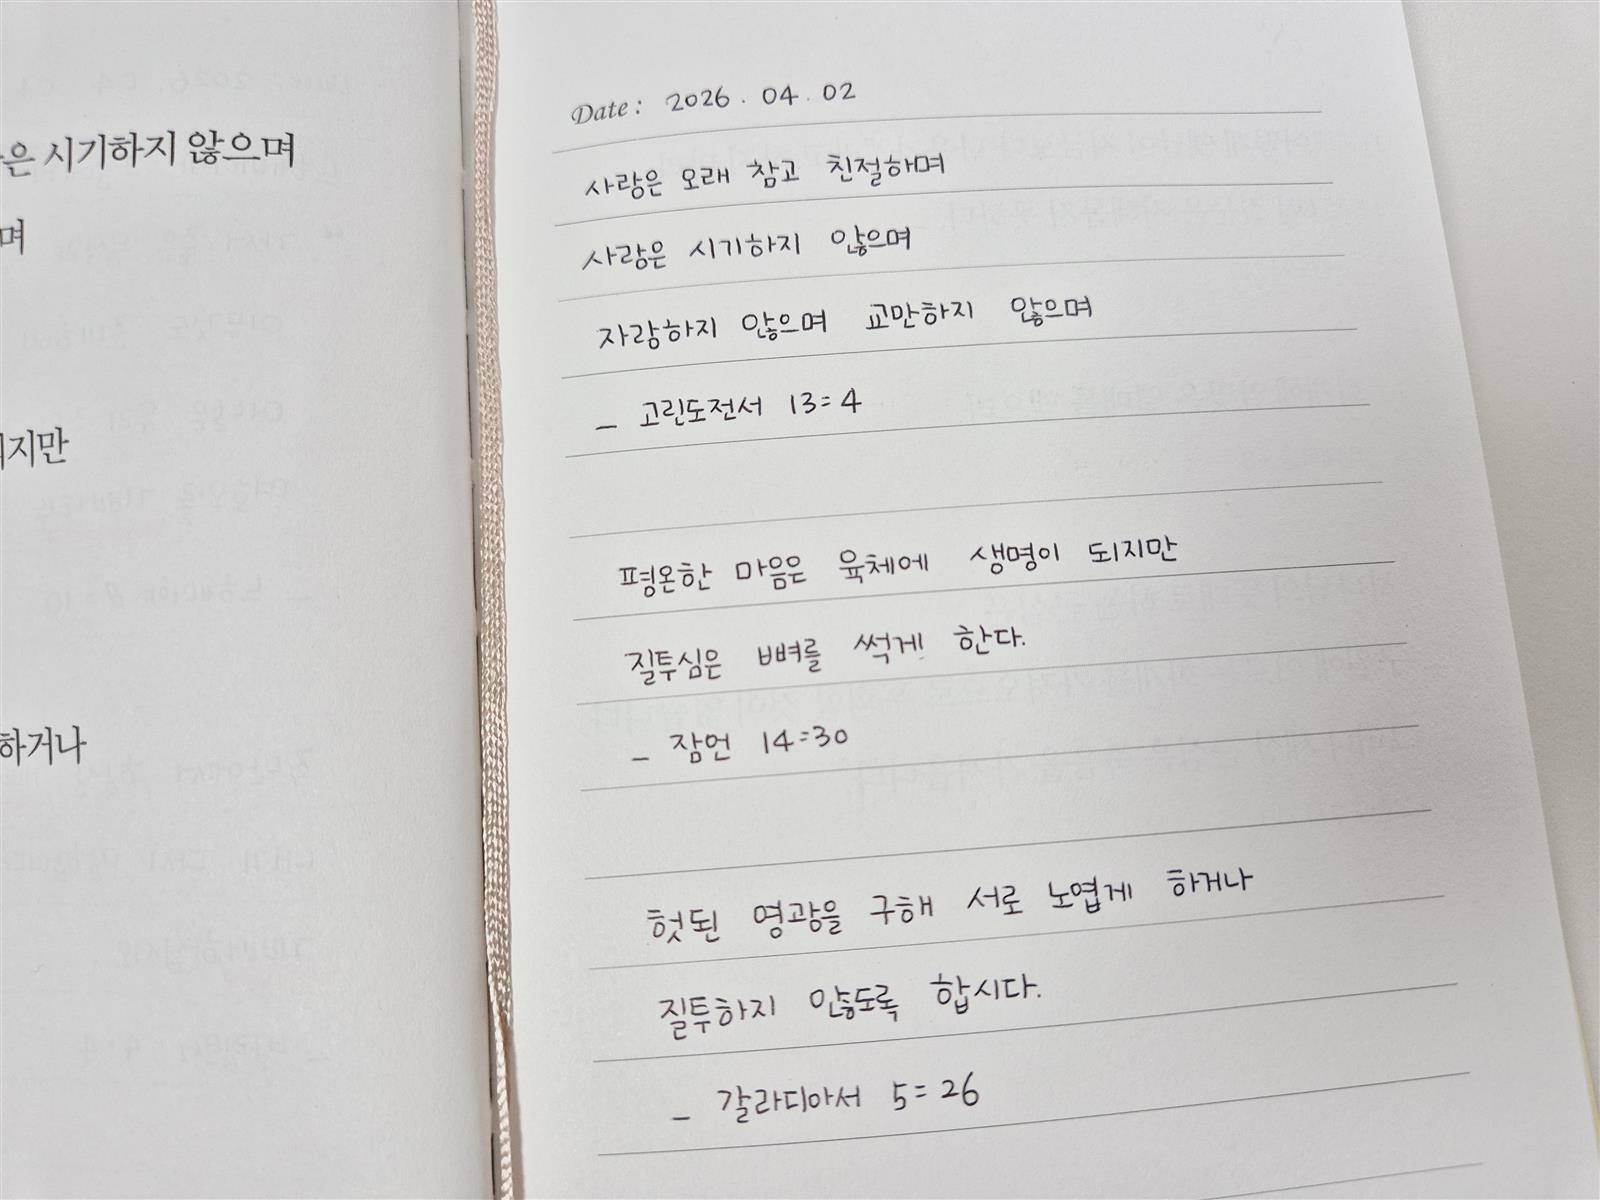 은 시기하지 않으며
며
지만
하거나
Date: 2026. 04. 02
사랑은 오래 참고 친절하며
사랑은 시기하지 않으며
자랑하지 않으며 교만하지 않으며
– 고린도전서 13=4
평온한 마음은 육체에 생명이 되지만
질투심은 뼈를 썩게 한다.
– 잠언 14=30
헛된 영광을 구해 서로 노엽게 하거나
질투하지 않도록 합시다.
– 갈라디아서 5=26